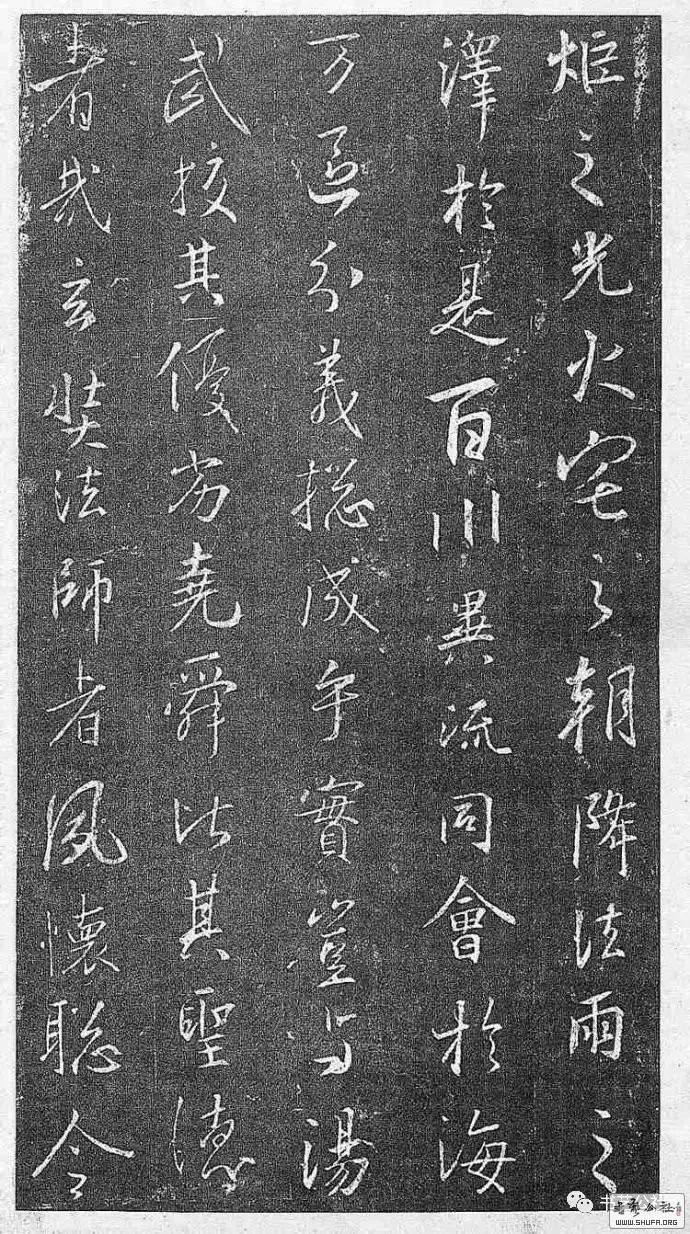 炬之光火宅之朝降法雨之
澤於是百川異流同會於海
万區分義揔成乎實豈与湯
武挍其優劣堯舜比其聖德
者哉玄奘法師者夙懷聡令
WWW.SHUFA.ORG